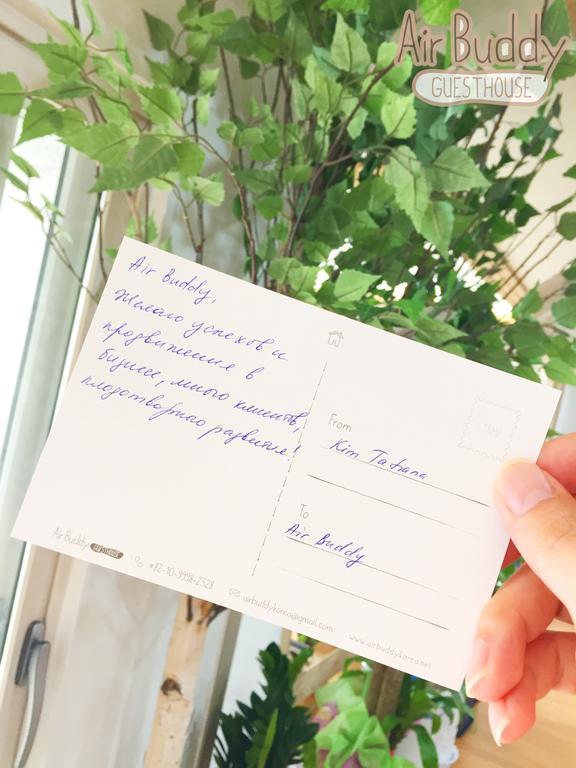 Air Buddy
GUESTHOUSE
Air Buddy,
Желаю успехов и
продвижения в
бизнесе, много клиентов,
плодотворного развития!
From
Kim Tatiana
STAMP
To
Air Buddy
Air Buddy GUESTHOUSE
+82-10-9998-2328
airbuddykorea@gmail.com
www.airbuddykorea.net